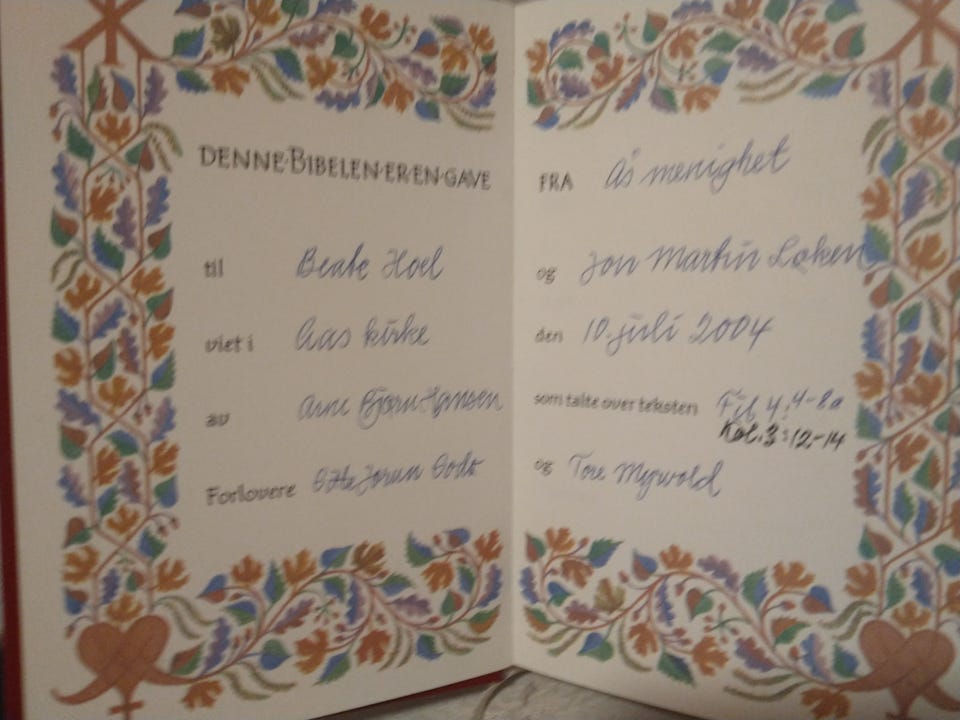 DENNE·BIBELEN·ER·EN·GAVE
til Beate Hoel
viet i Aas kirke
av Arne Bjørn Hansen
Forlovere Jorun
FRA Ås menighet
og Jon Martin Løken
den 10. juli 2004
som talte over teksten Fil 4: 4-8a
Kol. 3:12-14
og Tore